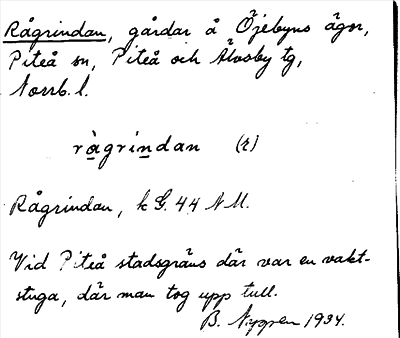 Rågrindan, gårdar å Öjebyns ägor,
Piteå sn, Piteå och Älvsby tg,
Norrb. l.
ràgrindan (r)
Rågrindan, k G. 44 N M.
Vid Piteå stadsgräns där var en vakt-
stuga, där man tog upp tull.
B. Nygren 1934.